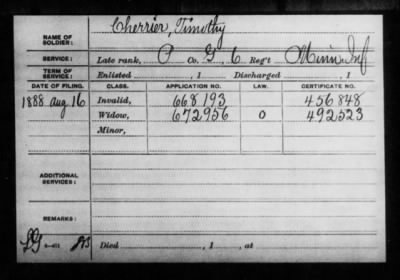 NAME OF SOLDIER: Cherrier, Timothy
SERVICE: Late rank, P Co. G, 6 Reg't Minn Inf
TERM OF SERVICE: Enlisted , 1 Discharged , 1
DATE OF FILING. CLASS. APPLICATION NO. LAW. CERTIFICATE NO.
1888 Aug 16 Invalid, 668193 456848
Widow, 672956 O 492523
Minor,
ADDITIONAL SERVICES:
REMARKS:
Died , 1 , at